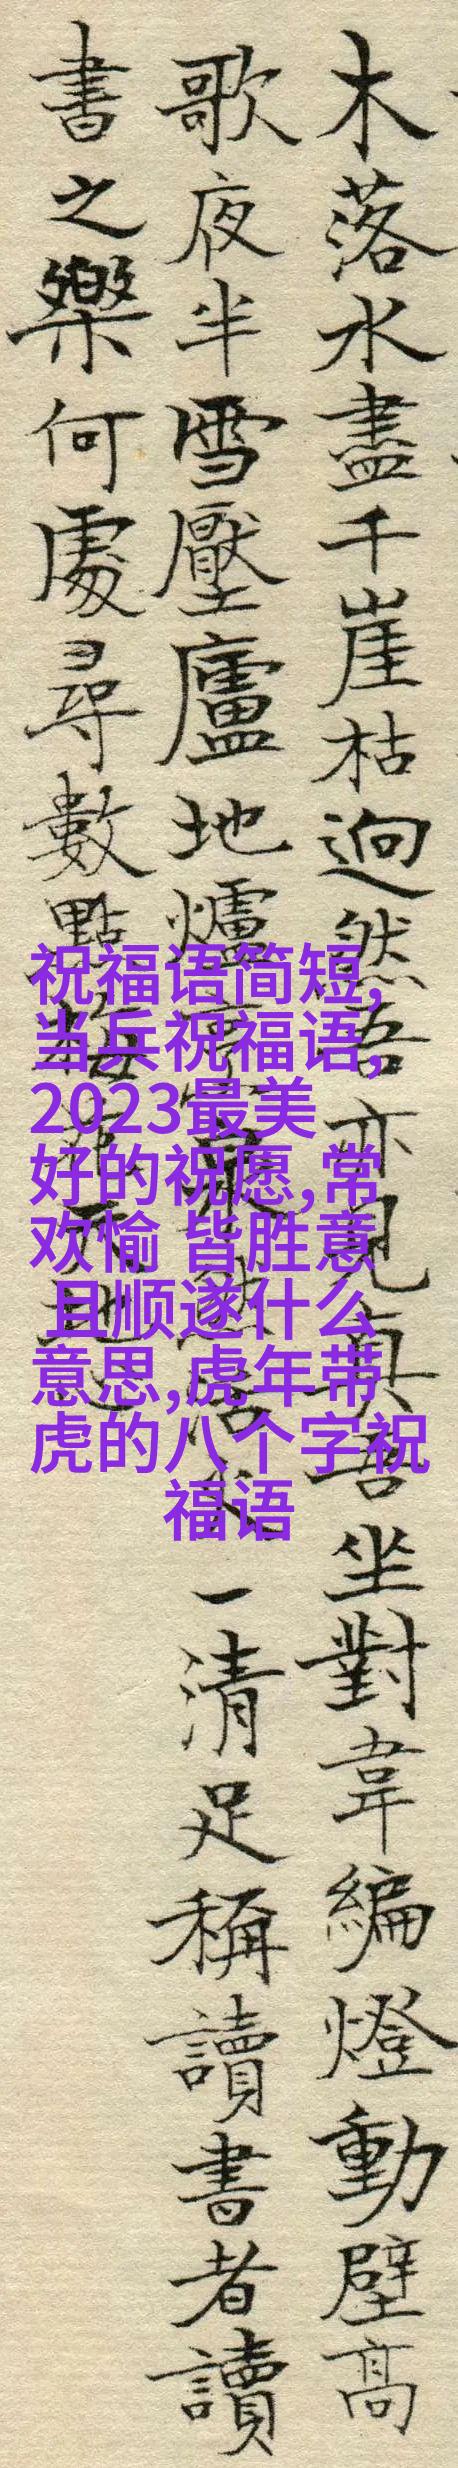 木落水盡千崖枯迥然吾亦見真吾坐對韋編燈動壁高
歌夜半雪壓廬地爐活火一清足稱讀書者讀
書之樂何處尋數點梅花天地心
祝福语简短,
当兵祝福语,
2023最美
好的祝愿,常
欢愉 皆胜意
且顺遂什么
意思,虎年带
虎的八个字祝
福语